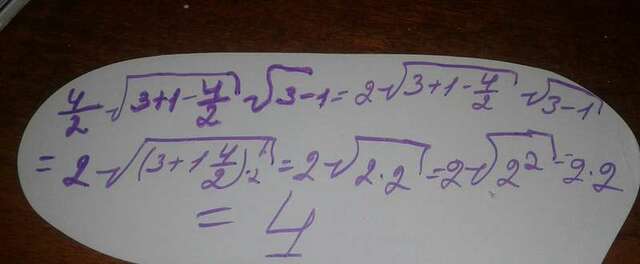 4/2 √(3+1-4/2) √3-1 = 2√(3+1-4/2) √(3-1)
= 2√((3+1 4/2)·2) = 2√(2·2) = 2√(2²) = 2·2
= 4